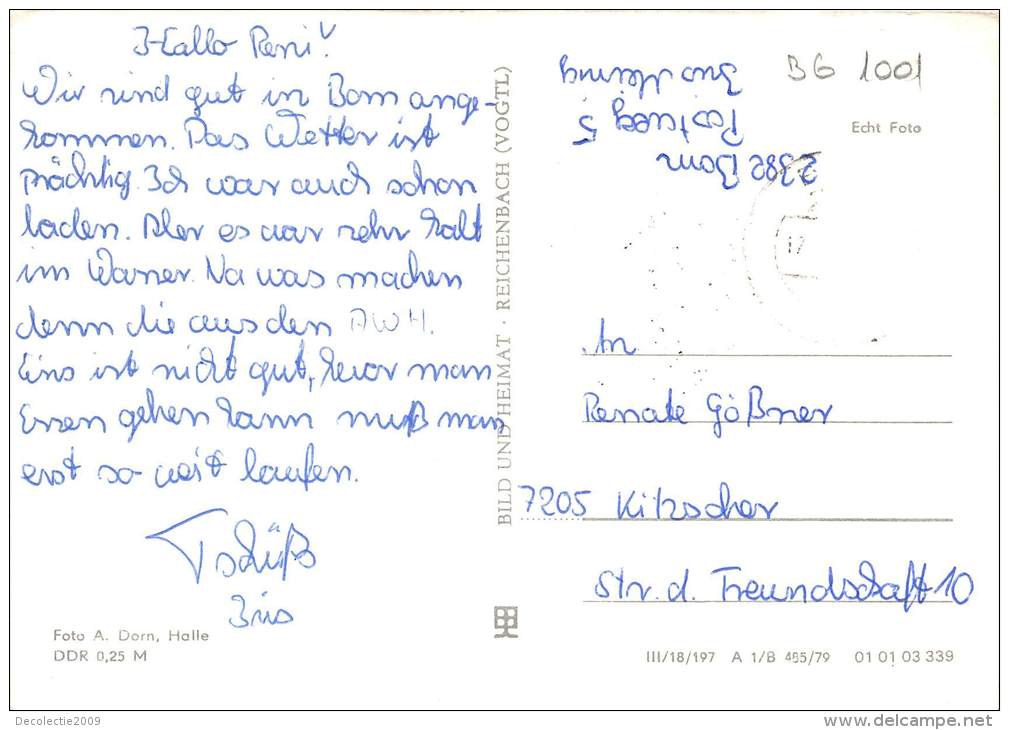 Hallo Reni!
Wir sind gut in Born ange-
kommen. Das Wetter ist
prächtig. Ich war auch schon
baden. Aber es war sehr kalt
im Wasser. Na was machen
denn die aus den AWH.
Eins ist nicht gut, bevor man
Essen gehen kann muß man
erst so weit laufen.
Tschüß
Ines
Foto A. Dorn, Halle
DDR 0,25 M
BILD UND HEIMAT · REICHENBACH (VOGTL)
BG 1001
Echt Foto
2382 Born
Postweg 5
An
Renate Gößner
7205 Kitzscher
Str. d. Freundschaft 10
III/18/197 A 1/B 485/79 01 01 03 339
Decolectie2009
www.delcampe.net